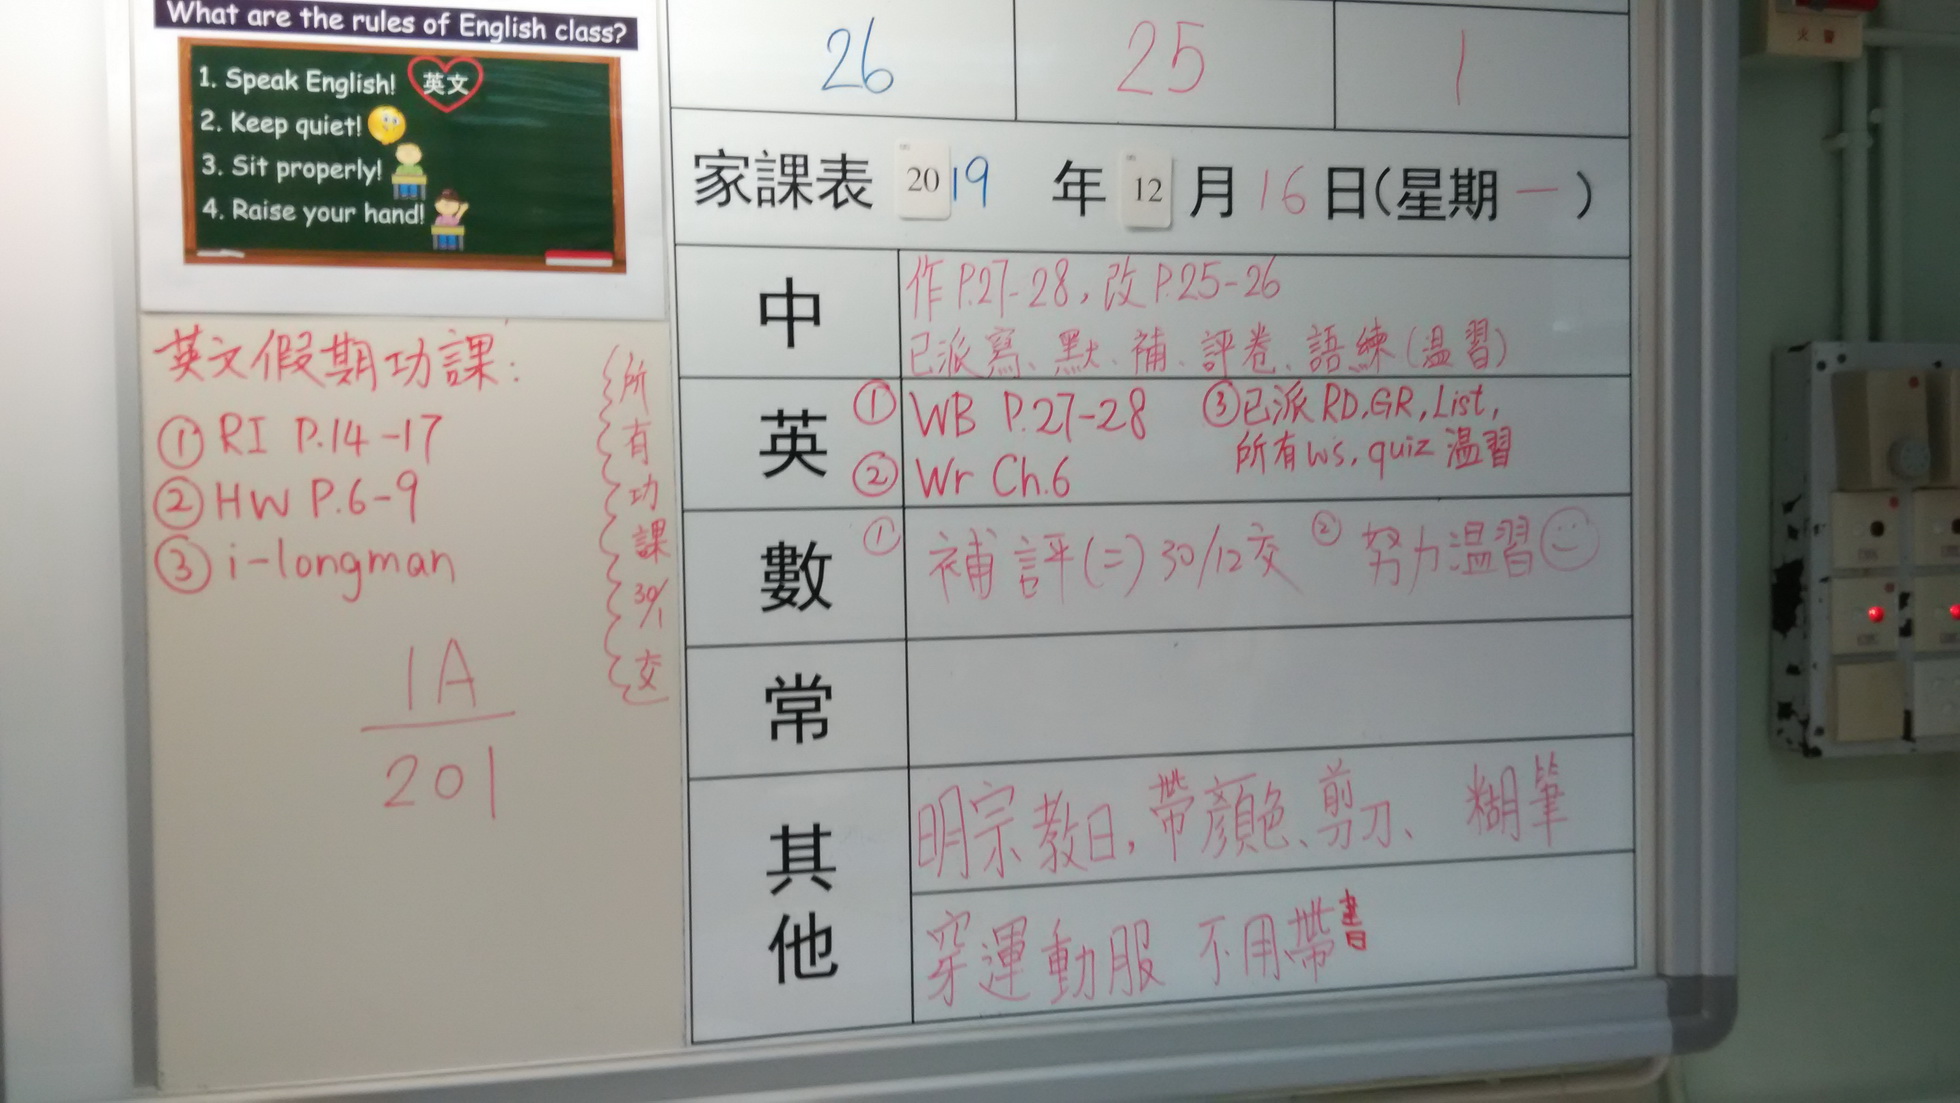 What are the rules of English class?
1. Speak English! 英文
2. Keep quiet!
3. Sit properly!
4. Raise your hand!
英文假期功課:
① RI P.14-17
② HW P.6-9
③ i-longman
所有功課30/1交
1A
201
26 25 1
家課表 2019 年 12 月 16 日(星期一)
中
作 P.27-28, 改 P.25-26
已派寫、默、補、評卷、語練(温習)
英
① WB P.27-28 ③已派 RD, GR, List,
② Wr Ch.6 所有ws, quiz 温習
數
① 補評(二) 30/12交 ② 努力温習
常
其他
明宗教日, 帶顏色、剪刀、糊筆
穿運動服 不用帶書
火警